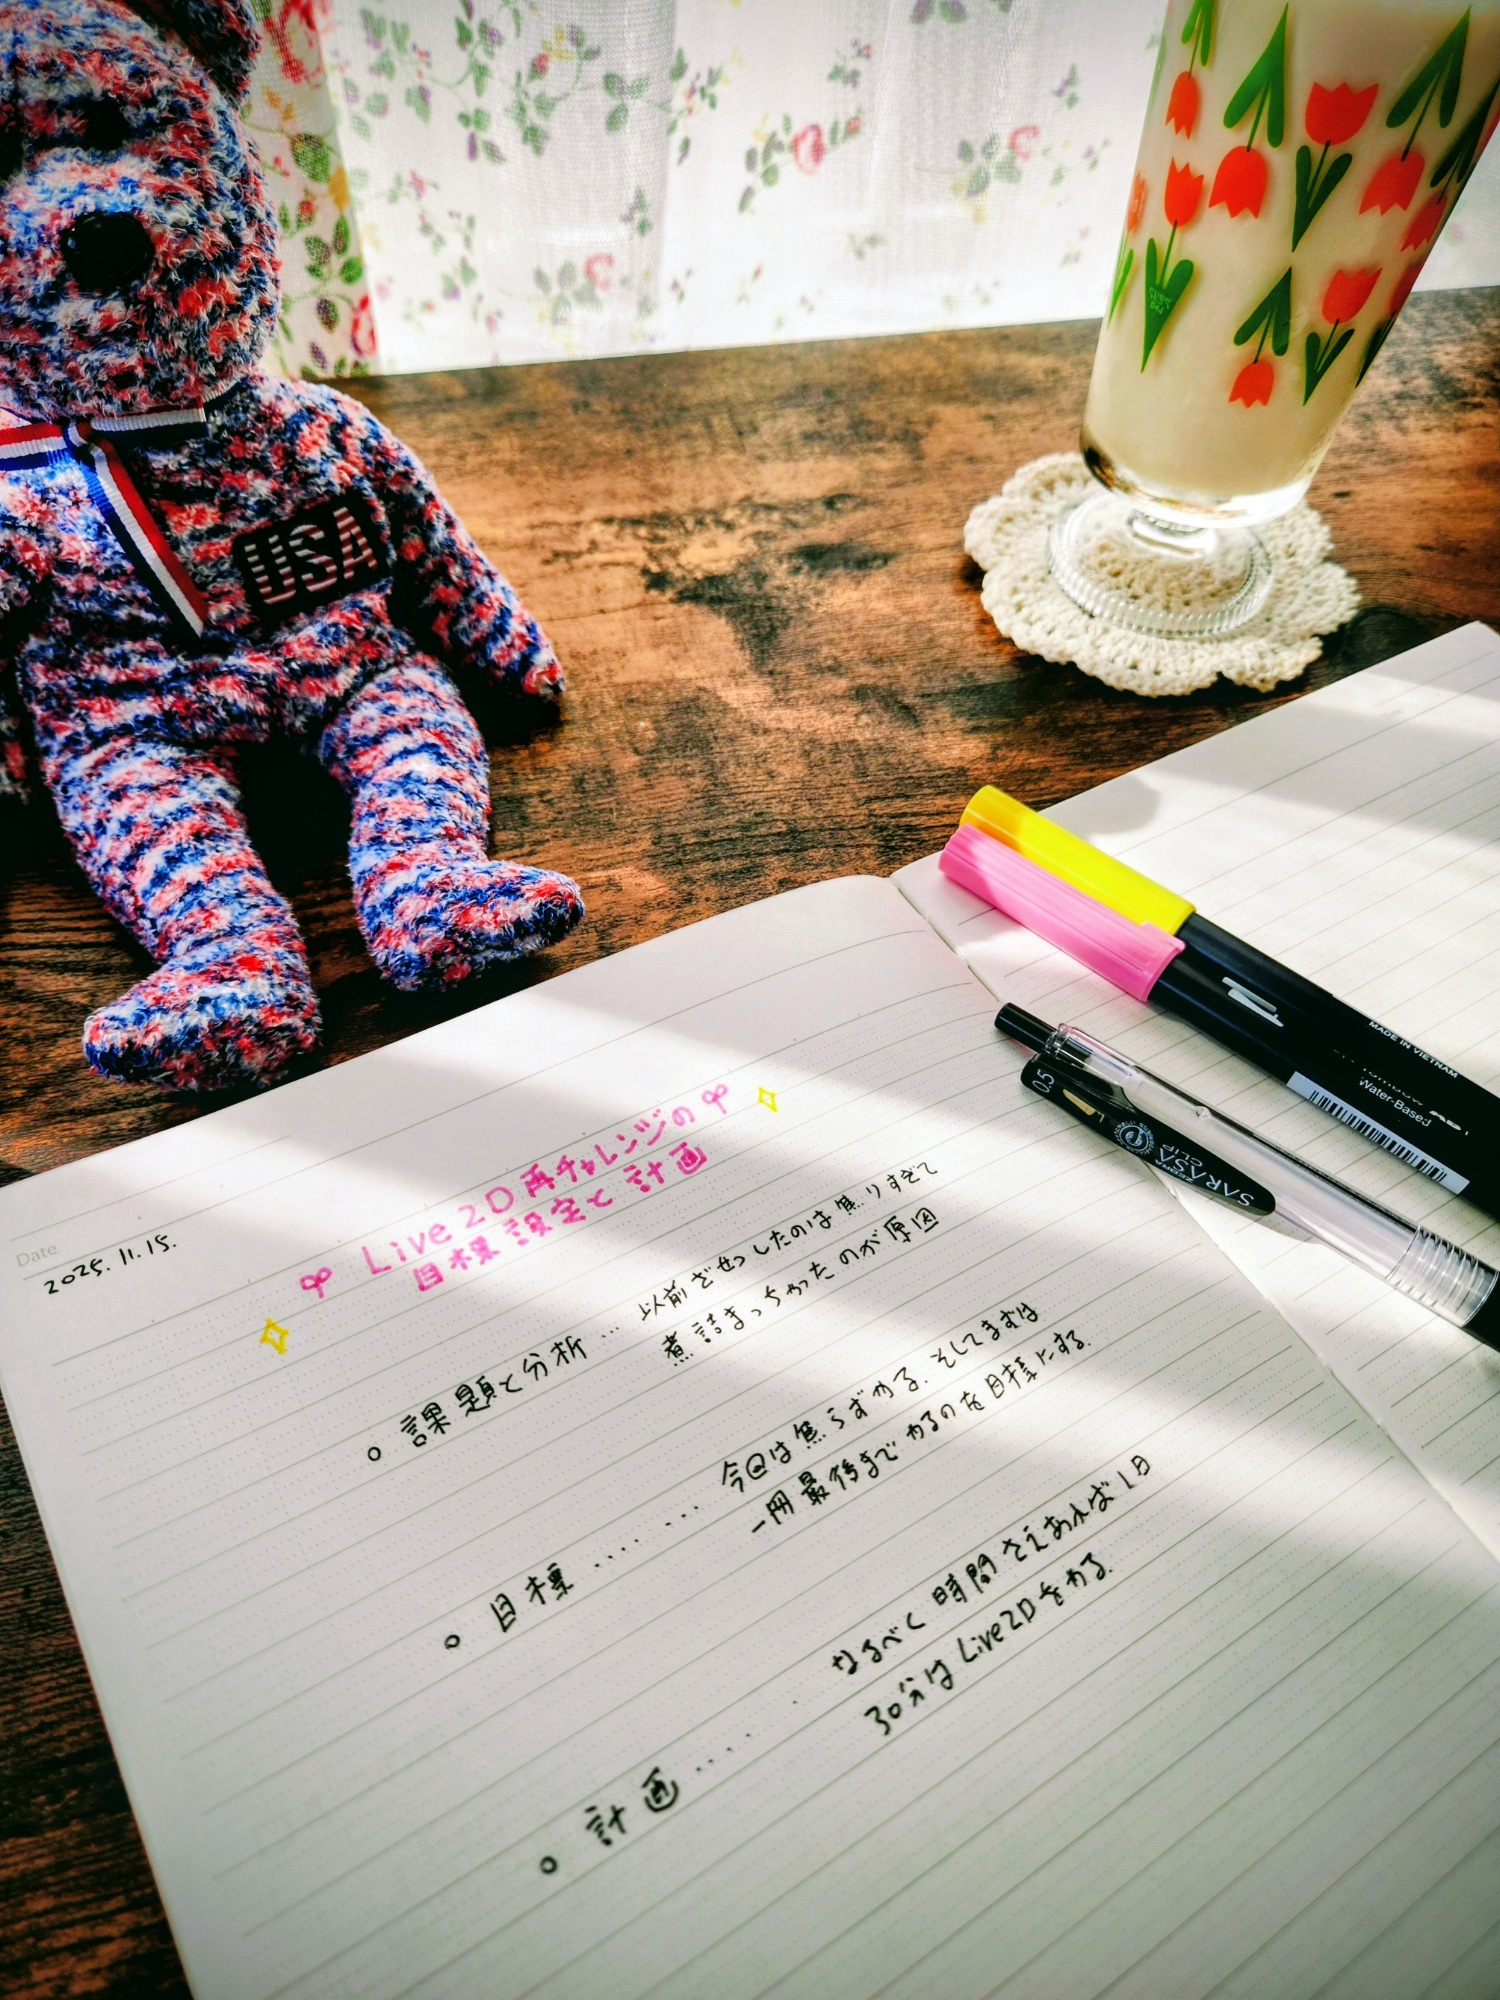 USA
Date
2025.11.15.
Live2D再チャレンジの
目標設定と計画
○ 課題と分析… 以前ざせつしたのは焦りすぎて
煮詰まっちゃったのが原因
○ 目標……… 今回は焦らずやる。そしてまずは
一冊最後までやるのを目標にする。
○ 計画…… なるべく時間さえあれば1日
30分はLive2Dをやる。
MADE IN VIETNAM
Tombow ABT
Water-Based
0.5
ZEBRA
SARASA
CLIP